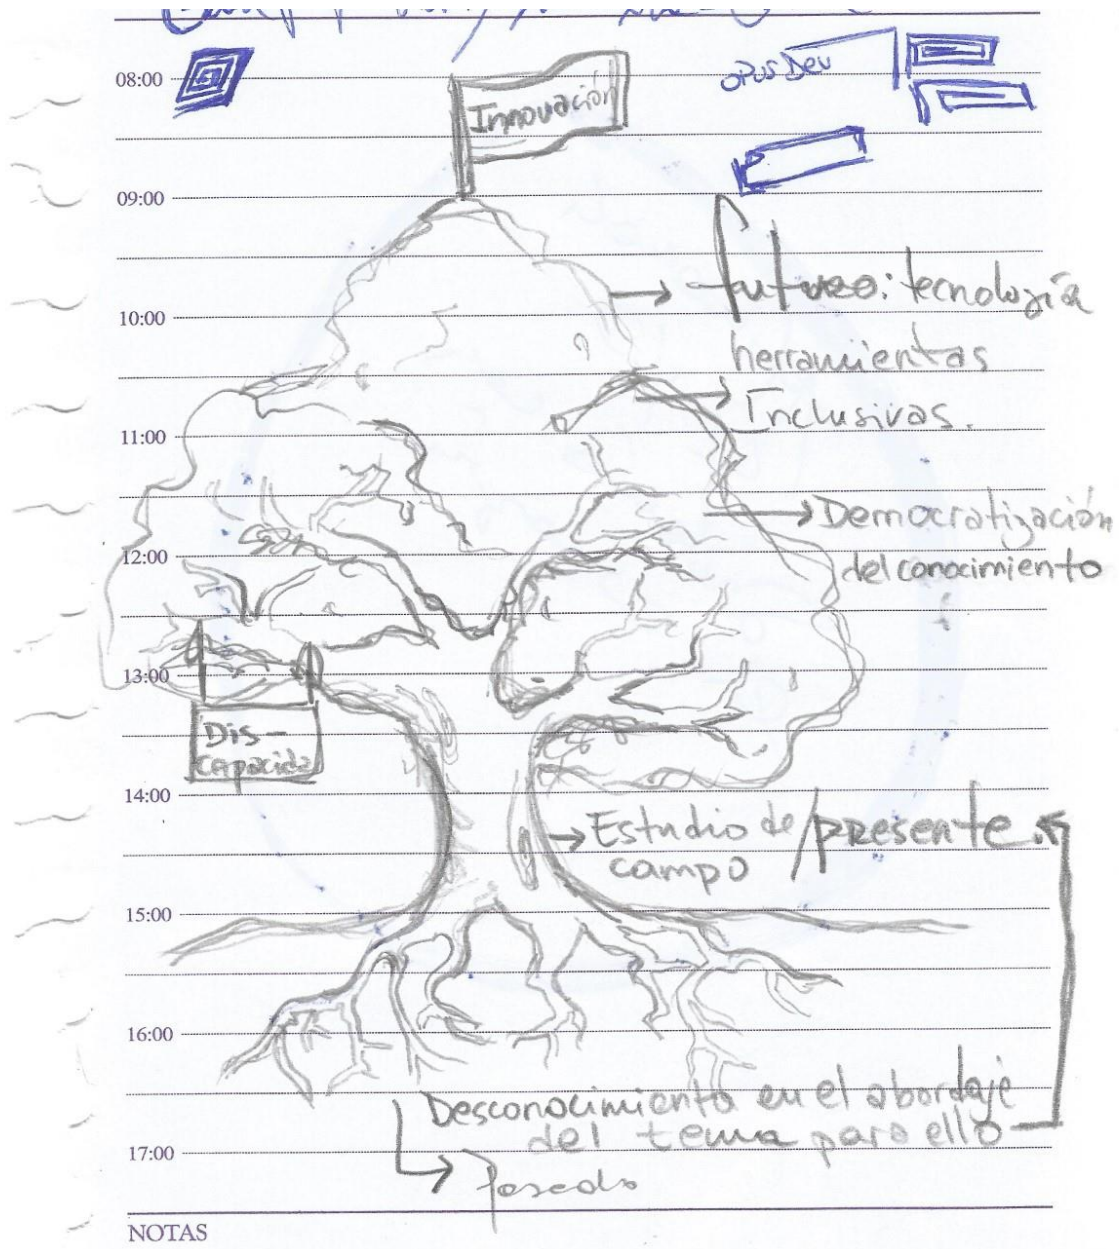 08:00
Innovación
opusDeu
09:00
futuro: tecnología
10:00
herramientas
Inclusivas.
11:00
Democratización
12:00
del conocimiento
13:00
Dis-
capacida
14:00
Estudio de / presente.
campo
15:00
16:00
Desconocimiento en el abordaje
del tema para ello
17:00
Pasado
NOTAS